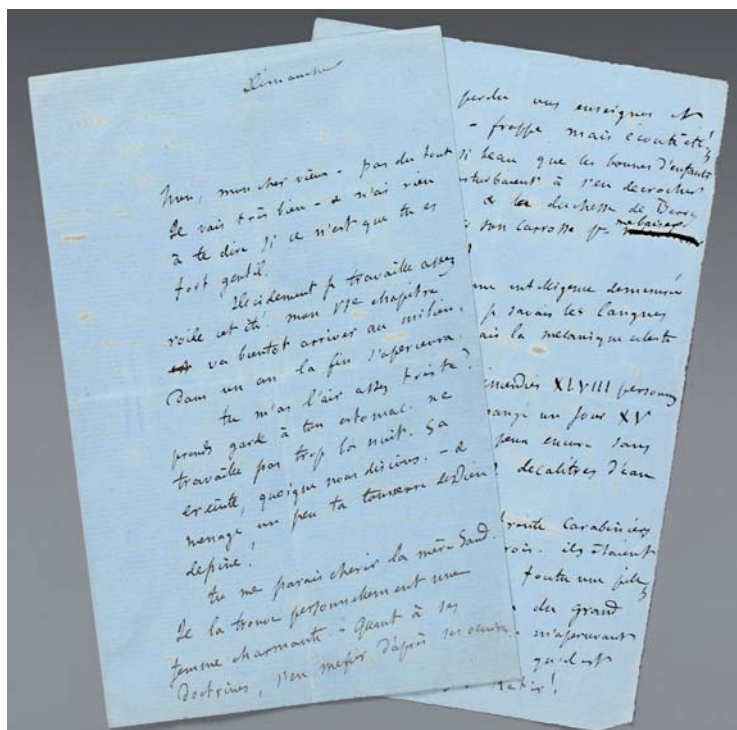 Dimanche
Non, mon cher vieux - pas du tout
Je vais très bien - & n'ai rien
à te dire si ce n'est que tu es
fort gentil.
Décidément je travaille assez
roide cet été! mon VIe chapitre
va bientôt arriver au milieu.
Dans un an la fin s'apercevra.
tu m'as l'air assez triste?
prends garde à ton estomac. ne
travaille pas trop la nuit. Ça
éreinte, quoique nous disions. - &
menage un peu ta
depine!
tu me parais cherir la mère Sand.
Je la trouve personnellement une
femme charmante. - Quant à ses
Doctrines, s'en mefier d'après ses œuvres.
perdu vos enseignes et
- froppe mais écoute etc!
si beau que les bonnes d'enfants
sturbaient à s'en decrocher
& la duchesse de Berry
son Carrosse pr me baiser
une intelligence demesurée
je savais les langues
ais la mecanique celeste
incendies XLVIII personnes
mangé un jour XV
peux encore sans
decalitres d'eau
trente Carabiniers
rois. ils étaient
foutu une pile
du grand
m'apercevant
qu'il est